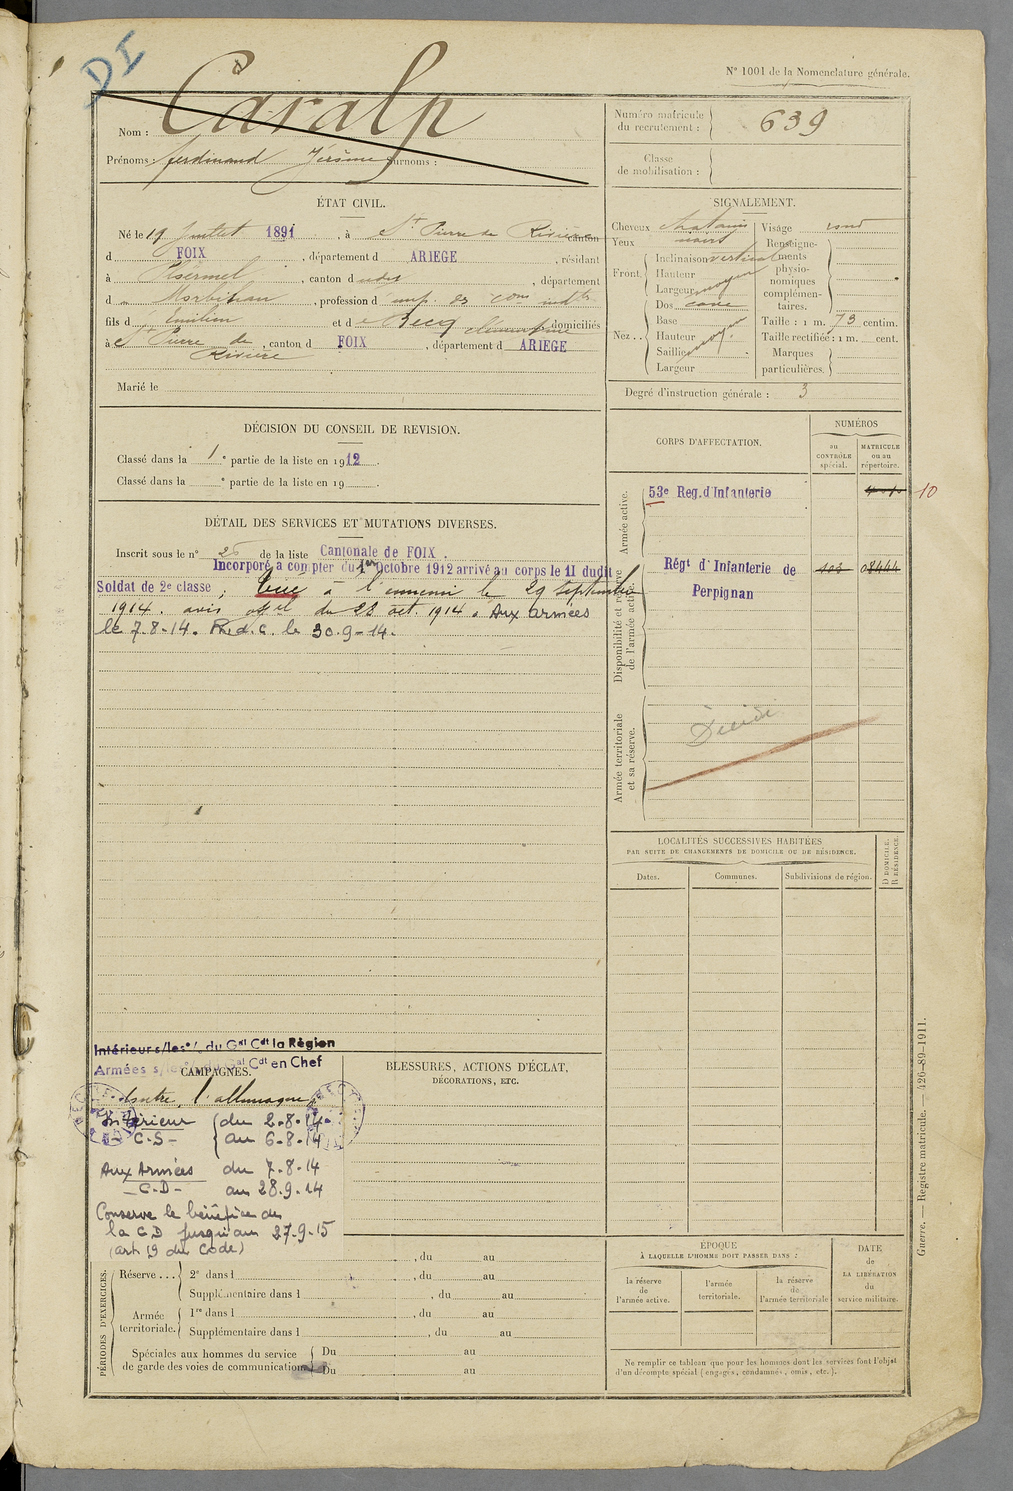 DI
N° 1001 de la Nomenclature générale.
Nom : Caralp
Prénoms : ferdinand Jérôme Surnoms :
Numéro matricule du recrutement : 639
Classe de mobilisation :
ÉTAT CIVIL.
Né le 19 Juillet 1891, à St Pierre de Rivière canton
d FOIX, département d ARIEGE, résidant
à Ploermel, canton d udit, département
d u Morbihan, profession d emp. de
fils d Emilien et d e Becq Clementine domiciliés
à St Pierre de Rivière, canton d FOIX, département d ARIEGE
Marié le
SIGNALEMENT.
Cheveux chatains
Yeux noirs
Front. Inclinaison vertical
Hauteur
Largeur moyen
Nez.. Dos cave
Base
Hauteur moy.
Saillie
Largeur
Visage rond
Renseignements physionomiques complémentaires.
Taille : 1 m. 73 centim.
Taille rectifiée : 1 m. cent.
Marques particulières.
Degré d'instruction générale : 3
DÉCISION DU CONSEIL DE REVISION.
Classé dans la 1e partie de la liste en 1912.
Classé dans la e partie de la liste en 19 .
DÉTAIL DES SERVICES ET MUTATIONS DIVERSES.
Inscrit sous le n° 26 de la liste Cantonale de FOIX.
Incorporé à compter du 1er Octobre 1912 arrivé au corps le 11 dudit
Soldat de 2e classe ; Tué à l'ennemi le 29 septembre
1914. avis offel du 28 oct. 1914. Aux armées
le 7.8-14. R.d.C. le 30.9-14.
CORPS D'AFFECTATION.
NUMÉROS
au CONTRÔLE spécial.
MATRICULE ou au répertoire.
Armée active.
53e Reg. d'Infanterie
10
Disponibilité et réserve de l'armée active.
Régt d'Infanterie de Perpignan
08444
Armée territoriale et sa réserve.
Décédé
LOCALITÉS SUCCESSIVES HABITÉES
PAR SUITE DE CHANGEMENTS DE DOMICILE OU DE RÉSIDENCE.
Dates.
Communes.
Subdivisions de région.
D DOMICILE. R RÉSIDENCE.
Intérieur s/les o/. du Gal Cdt la Région
Armées s/les Gal Cdt en Chef
CAMPAGNES.
Contre l'allemagne
Intérieur C.S- (du 2.8.14 au 6.8-14
Aux Armées du 7.8.14
-C.D- au 28.9.14
Conserve le bénéfice de
la C D jusqu'au 27-9-15
(art 19 du Code)
BLESSURES, ACTIONS D'ÉCLAT,
DÉCORATIONS, ETC.
PÉRIODES D'EXERCICES.
, du au
Réserve... 2e dans l , du au
Supplémentaire dans l , du au
Armée territoriale. 1re dans l , du au
Supplémentaire dans l , du au
Spéciales aux hommes du service de garde des voies de communication Du au
Du au
ÉPOQUE
À LAQUELLE L'HOMME DOIT PASSER DANS :
la réserve de l'armée active.
l'armée territoriale.
la réserve de l'armée territoriale
DATE de LA LIBÉRATION du service militaire.
Ne remplir ce tableau que pour les hommes dont les services font l'objet
d'un décompte spécial (engagés, condamnés, omis, etc.).
Guerre. — Registre matricule. — 426-89-1911.